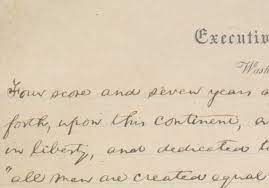 Executiv
Wash
Four score and seven years a
forth, upon this continent, a
in liberty, and dedicated t
"all men are created equal